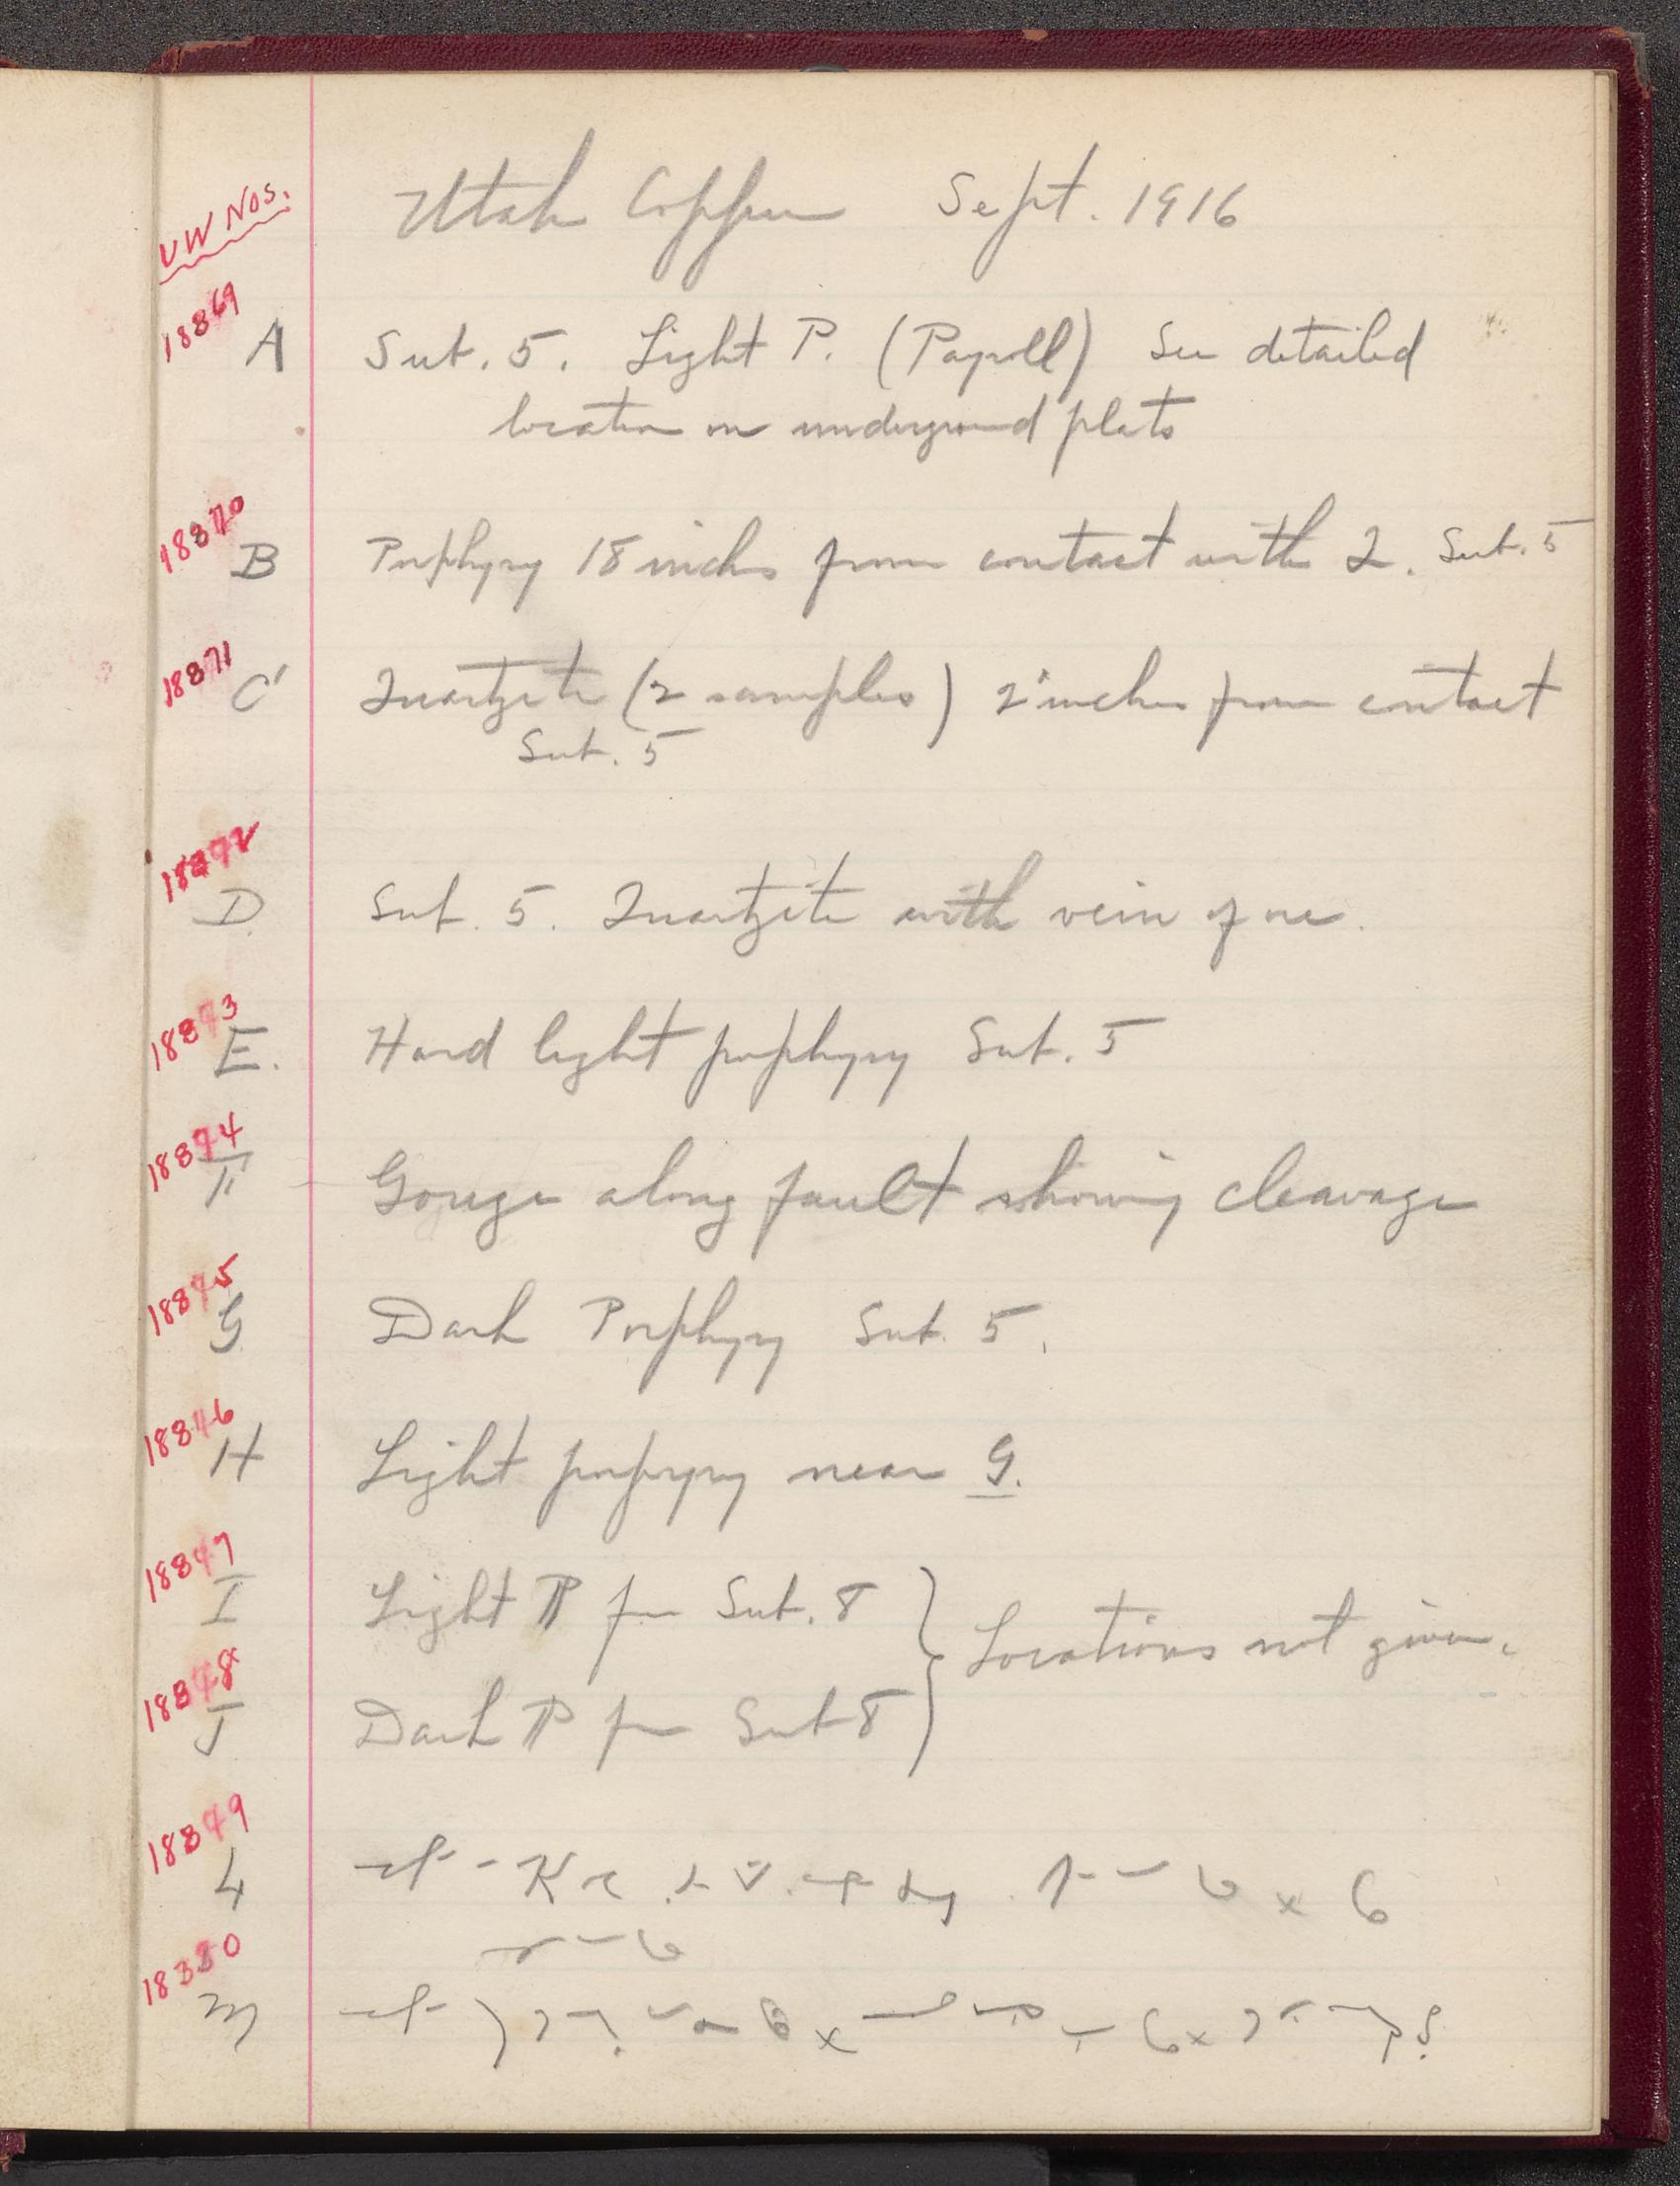 UW Nos.
Utah Copper Sept. 1916
18869
A Sub. 5. Light P. (Payroll) See detailed
location on underground plats
18870
B Porphyry 18 inches from contact with Q. Sub. 5
18871
C Quartzite (2 samples) 2 inches from contact
Sub. 5
18872
D. Sub. 5. Quartzite with vein of ore.
18873
E. Hard light porphyry Sub. 5
18874
F Gouge along fault showing cleavage
18875
G Dark Porphyry Sub. 5.
18876
H Light porpyry near G.
18877
I Light P fm Sub. 8
Locations not given.
18878
J Dark P fm Sub 8
18879
L
18880
M